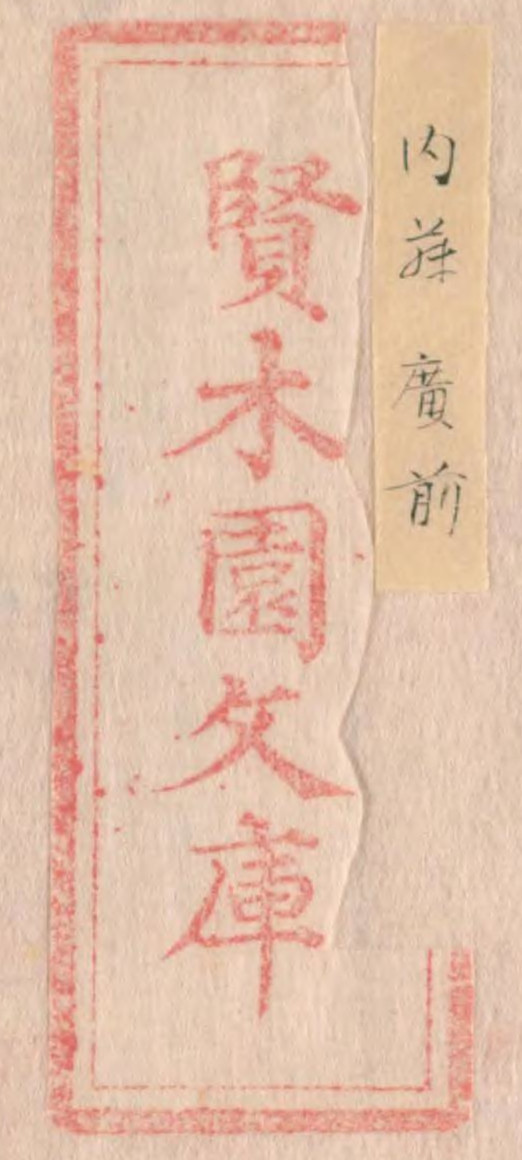 内藤廣前
賢木園文庫